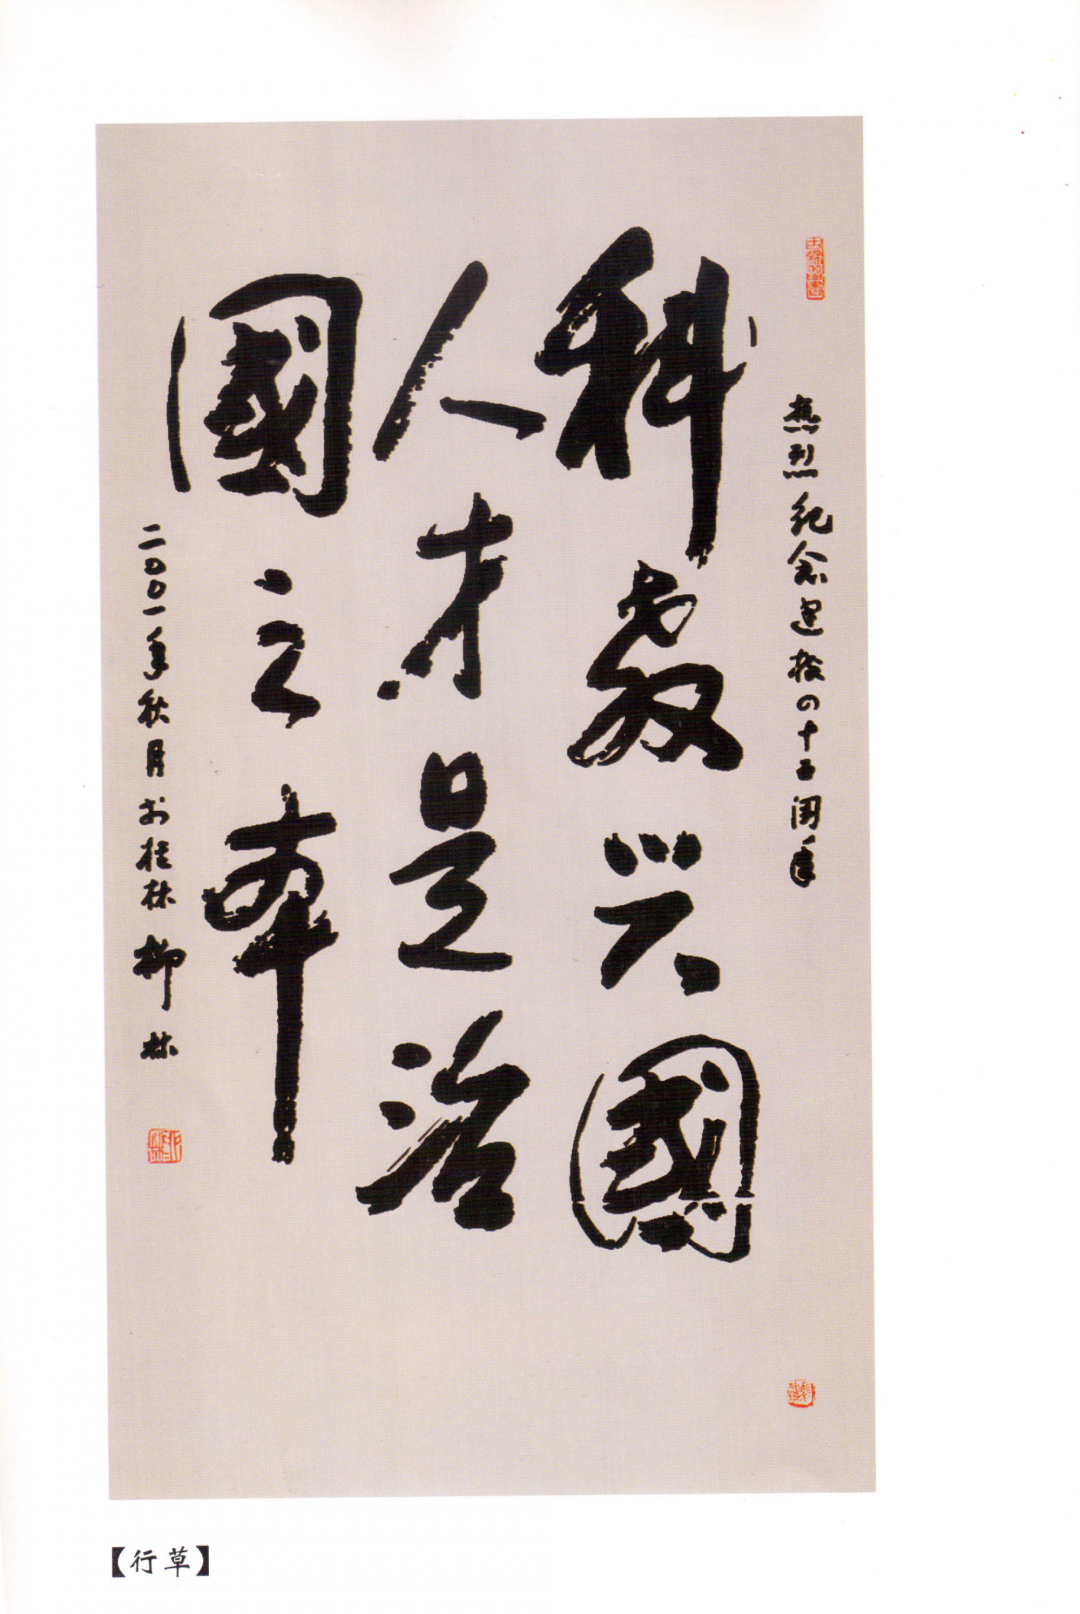 热烈纪念建校四十五周年
科教兴國
人才是治
國之本
二〇〇一年秋月於桂林 柳林
【行草】